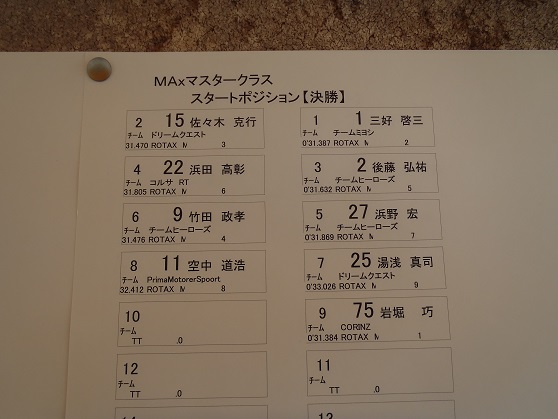 MAxマスタークラス
スタートポジション【決勝】
2 15 佐々木 克行
チーム ドリームクエスト
31.470 ROTAX M 3
1 1 三好 啓三
チーム チームミヨシ
0'31.387 ROTAX M 2
4 22 浜田 高彰
チーム コルサ RT
31.805 ROTAX M 6
3 2 後藤 弘祐
チーム チームヒーローズ
0'31.632 ROTAX M 5
6 9 竹田 政孝
チーム チームヒーローズ
31.476 ROTAX M 4
5 27 浜野 宏
チーム チームヒーローズ
0'31.869 ROTAX M 7
8 11 空中 道浩
チーム PrimaMotorerSpoort
32.412 ROTAX M 8
7 25 湯浅 真司
チーム ドリームクエスト
0'33.026 ROTAX M 9
10
チーム
TT .0
9 75 岩堀 巧
チーム CORINZ
0'31.384 ROTAX M 1
12
チーム
TT .0
11
チーム
TT .0